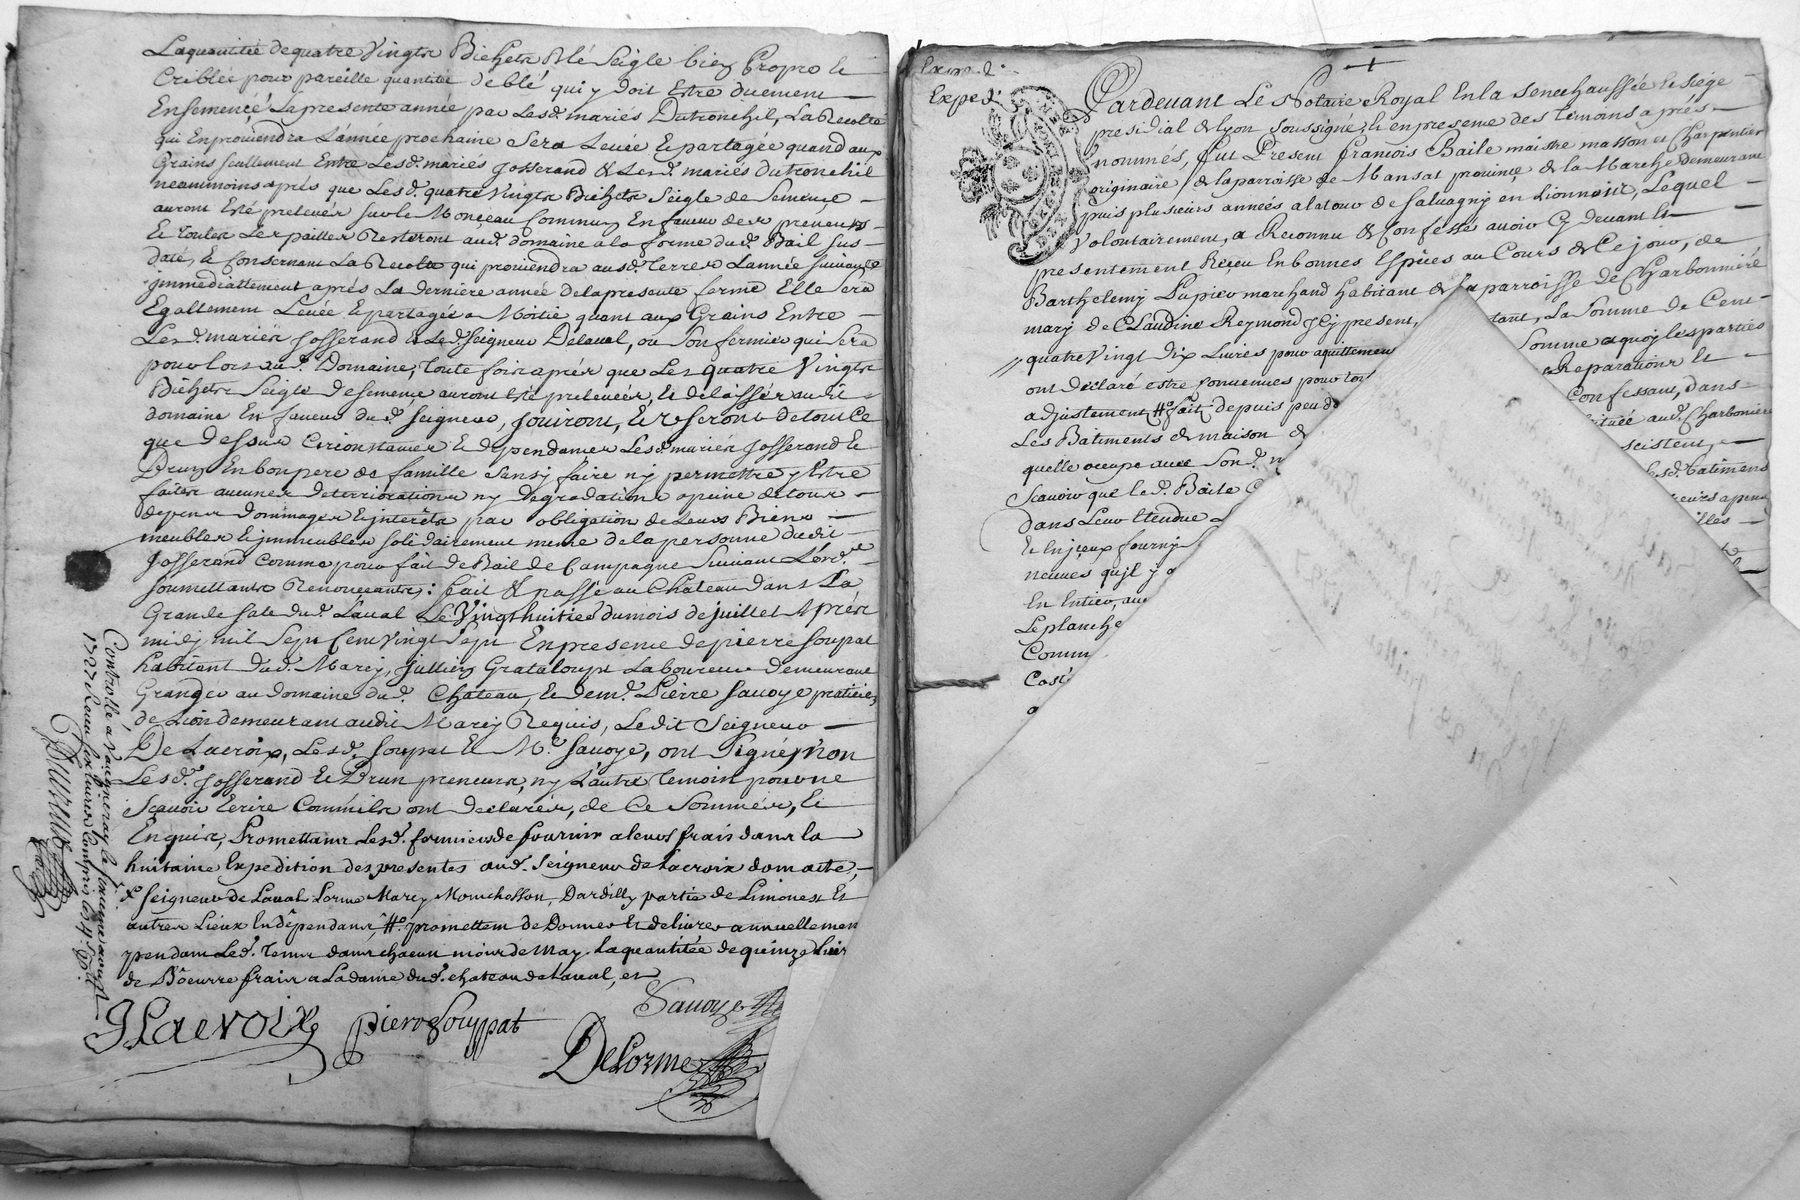 Laquantité de quatre Vingts Bichets Blé Seigle bien Propre et
Criblée pour pareille quantité de blé qui y doit Estre duement
Ensemencé La presente année par Lesd. mariés Dutronchil, La Recolte
qui Enproviendra L'année prochaine Sera Levée et partagée quand aux
Grains seullement Entre Lesd. mariés Josserand & Lesd. mariés Dutronchil
neanmoins aprés que Lesd. quatre Vingts Bichets Seigle de Semence
auront Esté prelevés sur le Monceau Commun En faveur des preneurs
Et toutes Les pailles Resteront aud. domaine a la forme dud. Bail sus
daté, Et Consernant La Recolte qui proviendra ausd. Terres L'année suivante
immediattement aprés La derniere année de la presente ferme Elle sera
Egallement Levée et partagée a Moitié quant aux Grains Entre
Lesd. mariés Josserand Et Led. Seigneur Delaval, ou Son fermier qui sera
pour lors aud. Domaine, Toute fois aprés que Les quatre Vingts
Bichets Seigle de semence auront Esté prelevés, Et delaissés audit
domaine En faveur dud. Seigneur, Jouiront, Et Useront de tout Ce
que Dessus Circonstances Et dependances Lesd. mariés Josserand Et
Drun En bon pere de famille sans y faire ny permettre y Estre
faites aucunes deteriorations ny degradations a peine de tous
depens dommages Et interêts par obligation de Leurs Biens
meubles Et immeubles solidairement meme de la personne dudit
Josserand Comme pour fait de Bail de Campagne suivant L'ord.ce
soumettants Renonceants: fait & passé au Château dans La
Grande sale dud. Laval Le Vingthuitiée du mois de juillet Aprés
midy mil Sept Cent Vingt Sept En presence de pierre soupat
habitant dud. Marcy, Jullien Grataloupt Laboureur demeurant
Granger au domaine dud. Château, Et de m. Pierre Savoye praticien
de Lion demeurant audit Marcy Requis, Ledit Seigneur
De Lacroix, Lesd. Soupat Et M. Savoye, ont Signé, Non
Lesd. Josserand Et Drun preneurs, ny L'autre Temoin pour ne
Scavoir Ecrire Comm'ils ont declarés, de Ce Sommés, Et
Enquis, Promettants Lesd. fermiers de fournir a leurs frais dans la
huitaine Expedition des presentes aud. Seigneur de Lacroix
Seigneur de Laval Lorme Marcy Dardilly partie de Limonest Et
autres Lieux En dépendants, promettent de Donner Et delivrer annuellemen
pendant Led. Tems dans chacun mois de May. La quantitée de quinze Livr
de Bœurre frais a La dame dud. chateau de Laval, et
Savoye
JLacroix pierre Souppat
DeLorme
Controllé a Vaugneray le
1727 Receu
Expedi
Exped.
Pardevant Le Notaire Royal En la Senechaussée Et Siege
presidial de Lyon Soussigné, Et en presence des Temoins aprés
nommés, fut Present francois Baile maistre masson et Charpentier
originaire de la parroisse de Mansat province de la Marche demeurant
puis plusieurs années a la tour de salvagny en Lionnois, Lequel
volontairement, a Reconnu & Confessé avoir Cy devant Et
presentement Reçeu En bonnes Espèces au Cours de Ce jour, de
Barthelemy Lupier marchand habitant de la parroisse de Charbonniere
mary de Claudine Reymond icy present, tant, La Somme de Cent
quatre Vingt Dix Livres pour aquittemen Somme a quoy les parties
ont declaré estre Convenues pour tou Reparations Et
adjustement fait depuis peu d Confessant, dans
Les Bâtiments & maison & situés aud. Charboniere
quelle occupe avec Son d. m sistent
Scavoir que led. Baile lesd. batimens
dans Leur Etendue
Et En iceux fourny
neuves qu'il y a
En Entier, au
Le planche
Comm